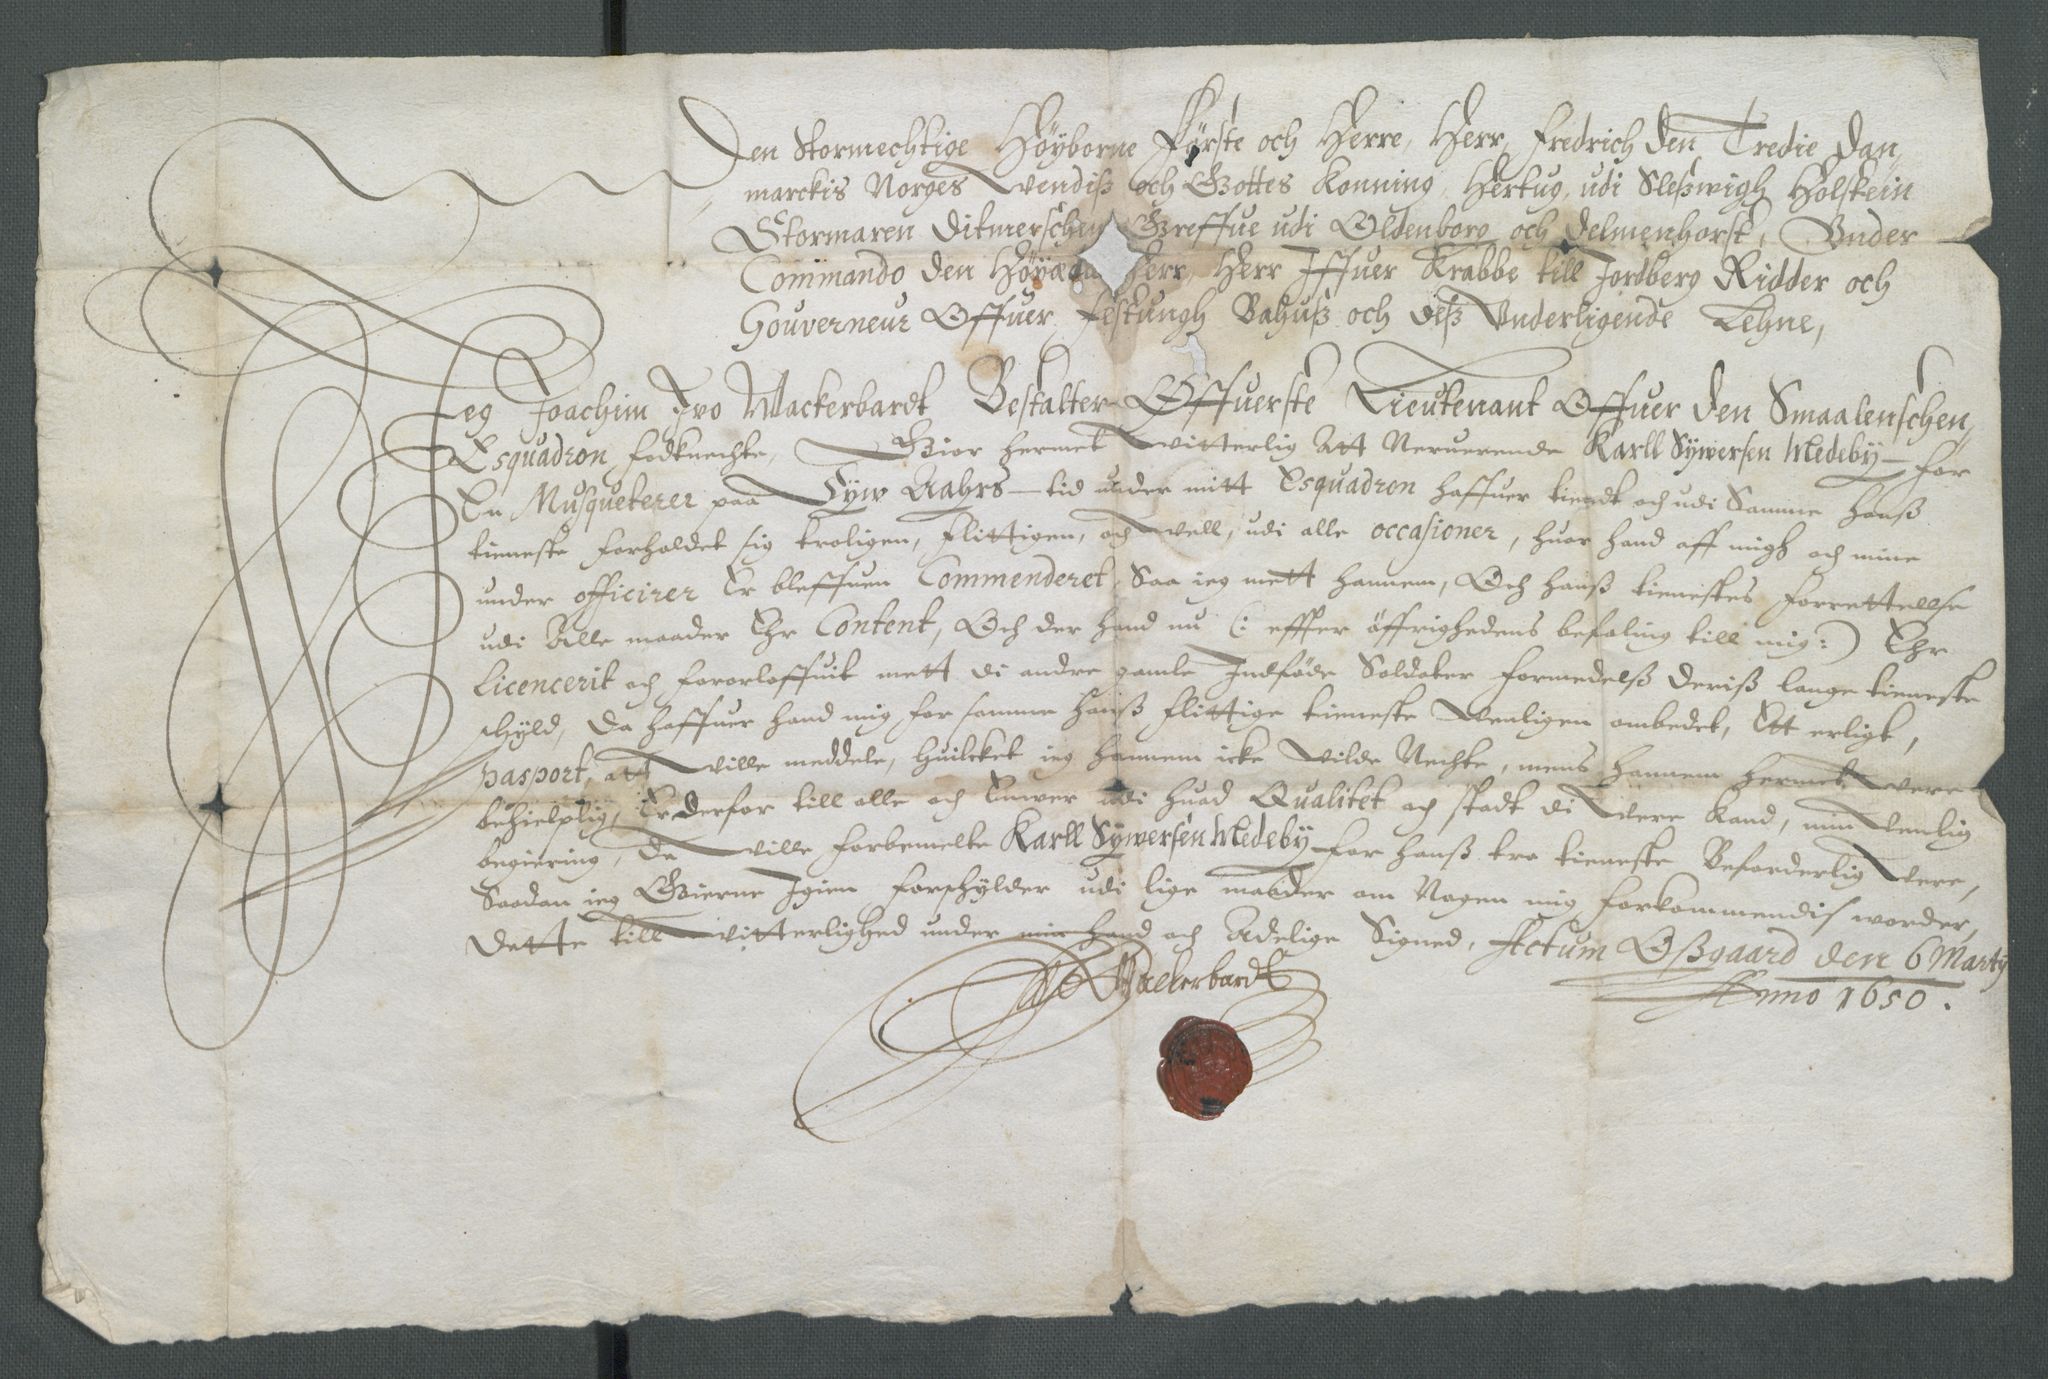 Den Stormechtige Höyborne Förste och Herre, Herr, Fredrich den Tredie Dan,
marckis Norges Vendiß och Gottes Konning, Hertug, udi Sleßwigh Holstein
Stormaren Ditmerschen Greffue udi Oldenborg och Delmenhorst, Vnder
Commando den Höyædle Herr, Herr Iffuer Krabbe till Jordberg Ridder och
Gouverneur Offuer Festungh Bahuß och deß Vnderligende Lehne,
Jeg Joachim Ivo Wackerbardt Bestalter Offuerste Lieutenant Offuer den Smaalenschen,
Esquadron fodknechte, Giör hermet Witterlig Att Neruerende Karll Sywersen Medeby for
En Musqueterer paa Tyw Aahrs tid under mitt Esquadron haffuer tient och udi Samme hanß
tieneste forholdet sig troligen, flittigen, och well, udi alle occasioner, huor hand aff migh och mine
under officirer Er bleffuen Commenderet, Saa ieg mett hannem, Och hanß tienestes forrettellse
udi Alle maader Ehr Content, Och der hand nu (: effter öffrighedens befaling till mig:) Ehr
Licencerit och fororloffuit mett di andre gamle Indföde Soldater formedelß deriß lange tieneste
schyld, Da haffuer hand mig for samme hanß flittige tieneste Venligen ombedet, Ett erligt,
pasport, att Ville meddele, huilcket ieg hannem icke Vilde Nechte, mens hannem hermet Vere
behielplig, Er derfor till alle och Enwer udi huad Qualitet och stadt di Vere kand, min Venlig
begiering, Da Ville forbemelte Karll Sywersen Medeby for hanß tro tieneste Beforderlig Vere,
Saadan ieg Gierne Igien forschylder udi lige maader om Nogen mig forkommendis worder,
Dette till Vitterlighed under min hand och Adelige Signed, Actum Oßgaard den 6 Marty
Anno 1650.
Wackerbardt